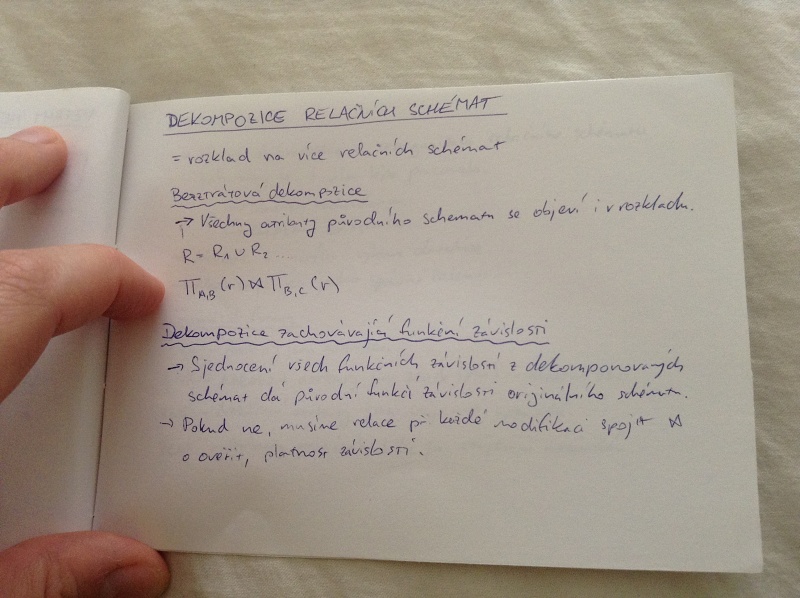 DEKOMPOZICE RELAČNÍCH SCHÉMAT
= rozklad na více relačních schémat
Bezztrátová dekompozice
→ Všechny atributy původního schematu se objeví i v rozkladu.
R = R₁ ∪ R₂ .....
Π A,B (r) ⋈ Π B,C (r)
Dekompozice zachovávající funkční závislosti
→ Sjednocení všech funkčních závislostí z dekomponovaných
schémat dá původní funkčí závislosti originálního schématu.
→ Pokud ne, musíme relace při každé modifikaci spojit ⋈
a ověřit, platnost závislostí.